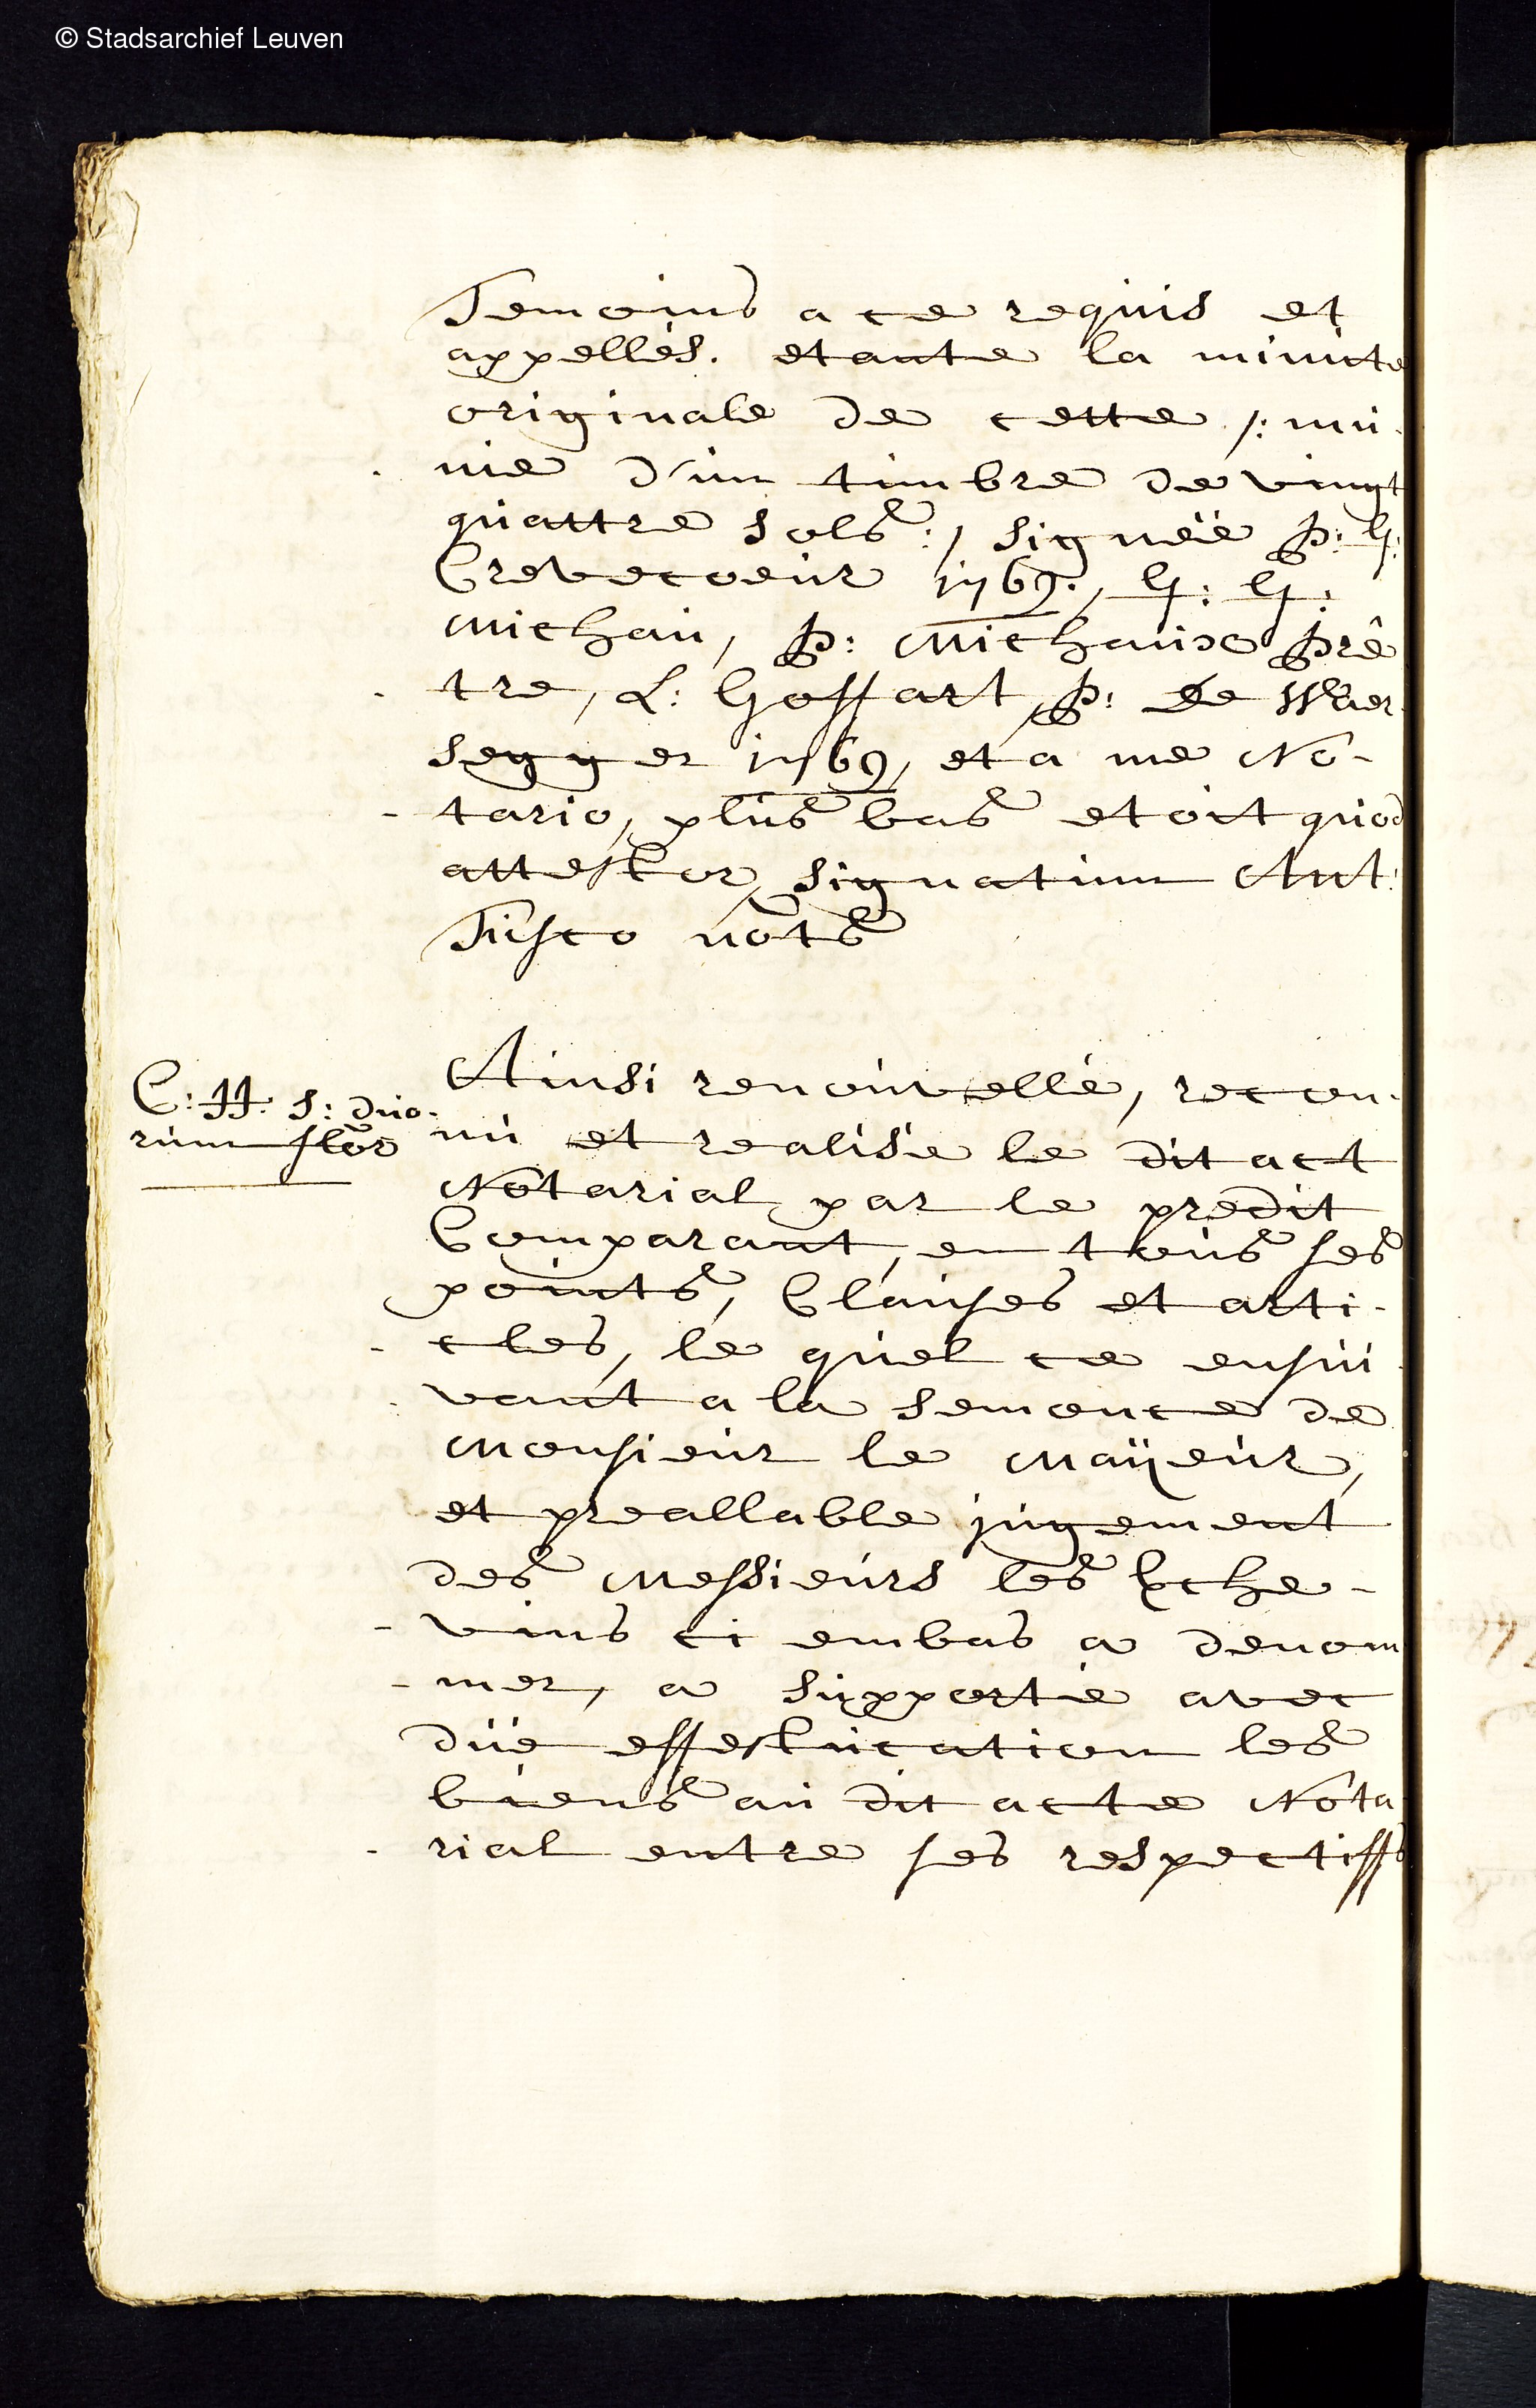 © Stadsarchief Leuven
Temoins a ce requis et
appellés. etante la minute
originale de cette /: mu-
nie d'un timbre de vingt
quattre sols :/ signéé P: G:
Crevecoeur 1769., G: G:
Michau, P: Michaux Prê
tre, L: Gossart, P: De Waer
segger 1769, et a me No-
tario, plus bas etoit quod
attestor, signatum Ant:
Tusco nots
C: H: S: duo-
rum flor
Ainsi renouvellé, recon-
nu et realisé le dit act
Notarial par le predit
Comparant, en tous ses
points, Clauses et arti-
cles, le quel ce ensui
vant a la semonce de
Monsieur le Maÿeur,
et preallable jugement
des Messieurs les Eche-
vins ci embas a denom
mer, a supporté avec
düe effestucation les
biens au dit acte Nota
rial entre ses respectiffs